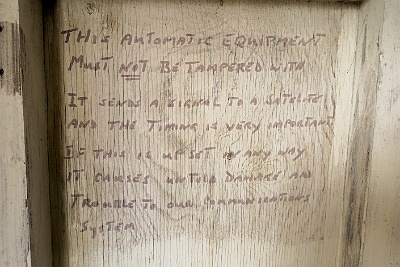 THIS AUTOMATIC EQUIPMENT
MUST NOT BE TAMPERED WITH
IT SENDS A SIGNAL TO A SATELITE
AND THE TIMING IS VERY IMPORTANT
IF THIS IS UPSET IN ANY WAY
IT CAUSES UNTOLD DAMAGE AND
TROUBLE TO OUR COMMUNICATIONS
SYSTEM